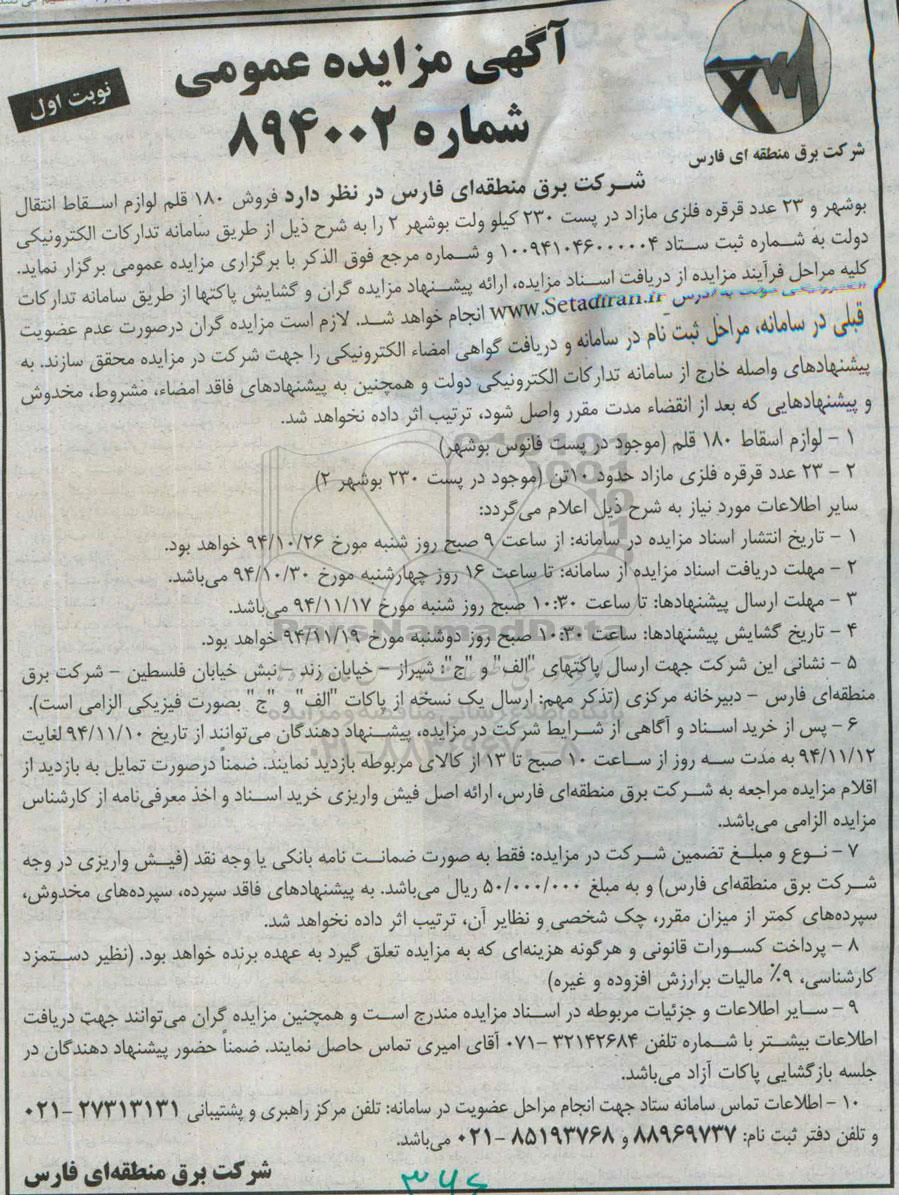 آگهی مزایده عمومی
شماره ۸۹۴۰۰۲
نوبت اول
شرکت برق منطقه ای فارس
شرکت برق منطقه‌ای فارس در نظر دارد فروش ۱۸۰ قلم لوازم اسقاط انتقال
بوشهر و ۲۳ عدد قرقره فلزی مازاد در پست ۲۳۰ کیلو ولت بوشهر ۲ را به شرح ذیل از طریق سامانه تدارکات الکترونیکی
دولت به شماره ثبت ستاد ۱۰۰۹۴۱۰۴۶۰۰۰۰۰۴ و شماره مرجع فوق الذکر با برگزاری مزایده عمومی برگزار نماید.
کلیه مراحل فرآیند مزایده از دریافت اسناد مزایده، ارائه پیشنهاد مزایده گران و گشایش پاکتها از طریق سامانه تدارکات
الکترونیکی دولت به آدرس www.Setadiran.ir انجام خواهد شد. لازم است مزایده گران درصورت عدم عضویت
قبلی در سامانه، مراحل ثبت نام در سامانه و دریافت گواهی امضاء الکترونیکی را جهت شرکت در مزایده محقق سازند. به
پیشنهادهای واصله خارج از سامانه تدارکات الکترونیکی دولت و همچنین به پیشنهادهای فاقد امضاء، مشروط، مخدوش
و پیشنهادهایی که بعد از انقضاء مدت مقرر واصل شود، ترتیب اثر داده نخواهد شد.
۱ - لوازم اسقاط ۱۸۰ قلم (موجود در پست فانوس بوشهر)
۲ - ۲۳ عدد قرقره فلزی مازاد حدود ۱۰تن (موجود در پست ۲۳۰ بوشهر ۲)
سایر اطلاعات مورد نیاز به شرح ذیل اعلام می‌گردد:
۱ - تاریخ انتشار اسناد مزایده در سامانه: از ساعت ۹ صبح روز شنبه مورخ ۹۴/۱۰/۲۶ خواهد بود.
۲ - مهلت دریافت اسناد مزایده از سامانه: تا ساعت ۱۶ روز چهارشنبه مورخ ۹۴/۱۰/۳۰ می‌باشد.
۳ - مهلت ارسال پیشنهادها: تا ساعت ۱۰:۳۰ صبح روز شنبه مورخ ۹۴/۱۱/۱۷ می‌باشد.
۴ - تاریخ گشایش پیشنهادها: ساعت ۱۰:۳۰ صبح روز دوشنبه مورخ ۹۴/۱۱/۱۹ خواهد بود.
۵ - نشانی این شرکت جهت ارسال پاکتهای "الف" و "ج": شیراز - خیابان زند - نبش خیابان فلسطین - شرکت برق
منطقه‌ای فارس - دبیرخانه مرکزی (تذکر مهم: ارسال یک نسخه از پاکات "الف" و "ج" بصورت فیزیکی الزامی است).
۶ - پس از خرید اسناد و آگاهی از شرایط شرکت در مزایده، پیشنهاد دهندگان می‌توانند از تاریخ ۹۴/۱۱/۱۰ لغایت
۹۴/۱۱/۱۲ به مدت سه روز از ساعت ۱۰ صبح تا ۱۳ از کالای مربوطه بازدید نمایند. ضمناً درصورت تمایل به بازدید از
اقلام مزایده مراجعه به شرکت برق منطقه‌ای فارس، ارائه اصل فیش واریزی خرید اسناد و اخذ معرفی‌نامه از کارشناس
مزایده الزامی می‌باشد.
۷ - نوع و مبلغ تضمین شرکت در مزایده: فقط به صورت ضمانت نامه بانکی یا وجه نقد (فیش واریزی در وجه
شرکت برق منطقه‌ای فارس) و به مبلغ ۵۰/۰۰۰/۰۰۰ ریال می‌باشد. به پیشنهادهای فاقد سپرده، سپرده‌های مخدوش،
سپرده‌های کمتر از میزان مقرر، چک شخصی و نظایر آن، ترتیب اثر داده نخواهد شد.
۸ - پرداخت کسورات قانونی و هرگونه هزینه‌ای که به مزایده تعلق گیرد به عهده برنده خواهد بود. (نظیر دستمزد
کارشناسی، ۹٪ مالیات برارزش افزوده و غیره)
۹ - سایر اطلاعات و جزئیات مربوطه در اسناد مزایده مندرج است و همچنین مزایده گران می‌توانند جهت دریافت
اطلاعات بیشتر با شماره تلفن ۳۲۱۴۲۶۸۴ -۰۷۱ آقای امیری تماس حاصل نمایند. ضمناً حضور پیشنهاد دهندگان در
جلسه بازگشایی پاکات آزاد می‌باشد.
۱۰ - اطلاعات تماس سامانه ستاد جهت انجام مراحل عضویت در سامانه: تلفن مرکز راهبری و پشتیبانی ۲۷۳۱۳۱۳۱ -۰۲۱
و تلفن دفتر ثبت نام: ۸۸۹۶۹۷۳۷ و ۸۵۱۹۳۷۶۸ -۰۲۱ می‌باشد.
شرکت برق منطقه‌ای فارس
ParsNamadData
پایگاه اطلاع رسانی مناقصه و مزایده
۰۲۱-۸۸۳۴۹۶۷۰-۵